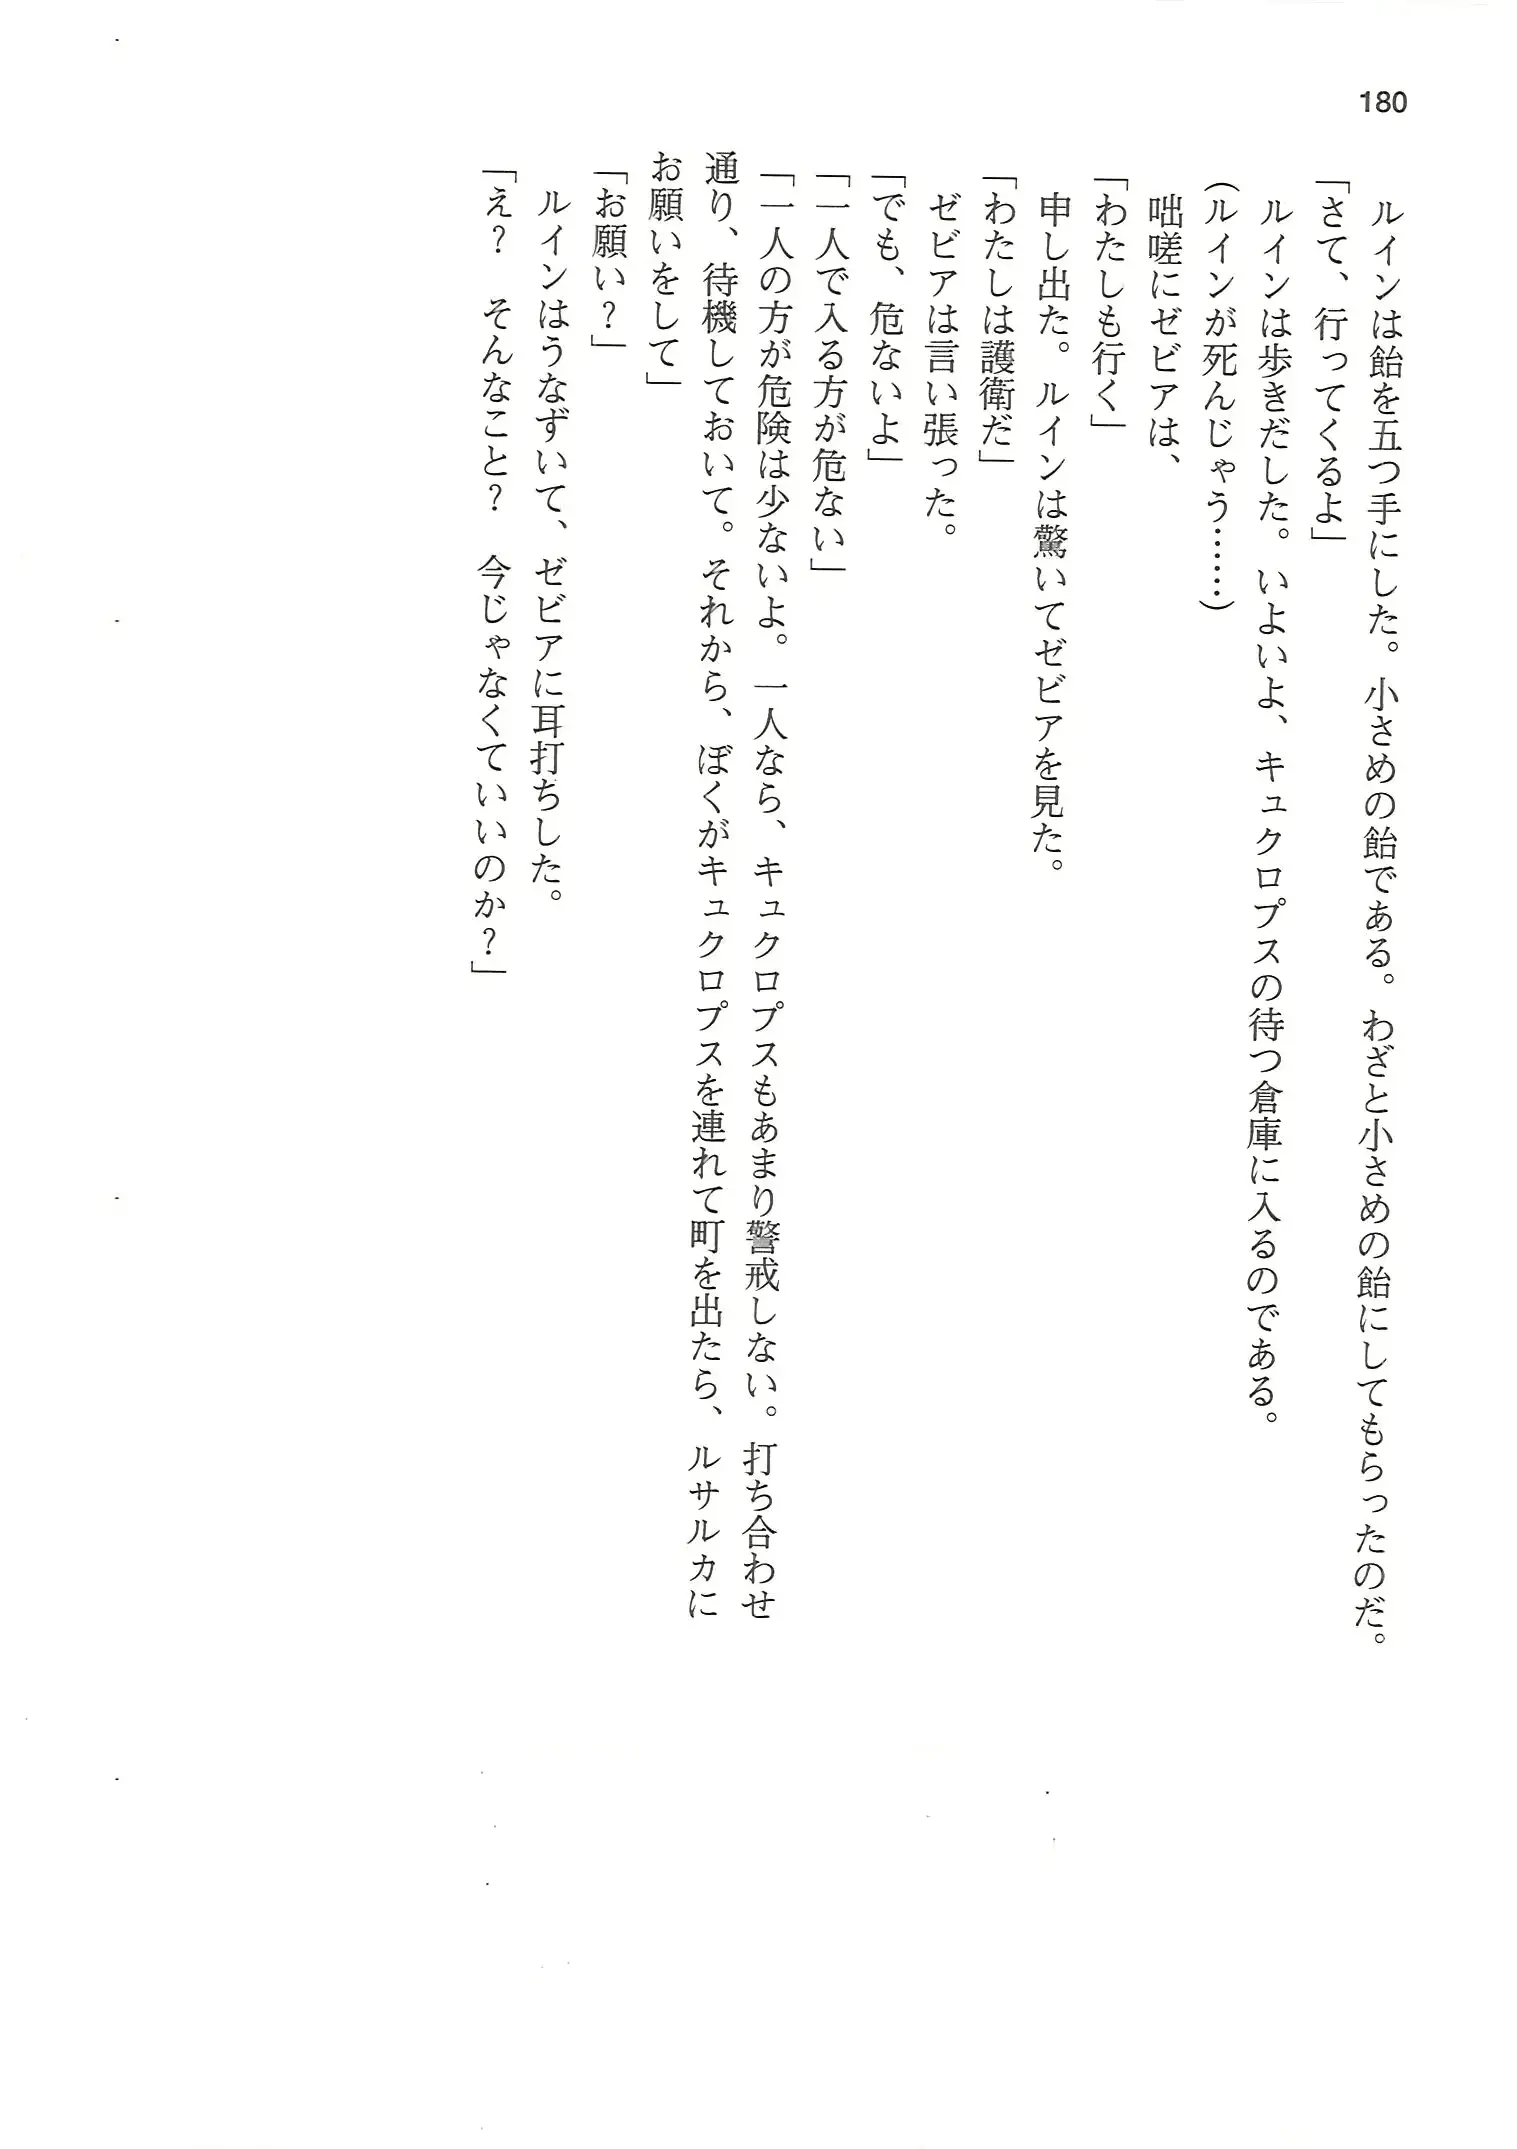 180
　ルインは飴を五つ手にした。小さめの飴である。わざと小さめの飴にしてもらったのだ。
「さて、行ってくるよ」
　ルインは歩きだした。いよいよ、キュクロプスの待つ倉庫に入るのである。
（ルインが死んじゃう……）
　咄嗟にゼビアは、
「わたしも行く」
　申し出た。ルインは驚いてゼビアを見た。
「わたしは護衛だ」
　ゼビアは言い張った。
「でも、危ないよ」
「一人で入る方が危ない」
「一人の方が危険は少ないよ。一人なら、キュクロプスもあまり警戒しない。打ち合わせ
通り、待機しておいて。それから、ぼくがキュクロプスを連れて町を出たら、ルサルカに
お願いをして」
「お願い？」
　ルインはうなずいて、ゼビアに耳打ちした。
「え？　そんなこと？　今じゃなくていいのか？」